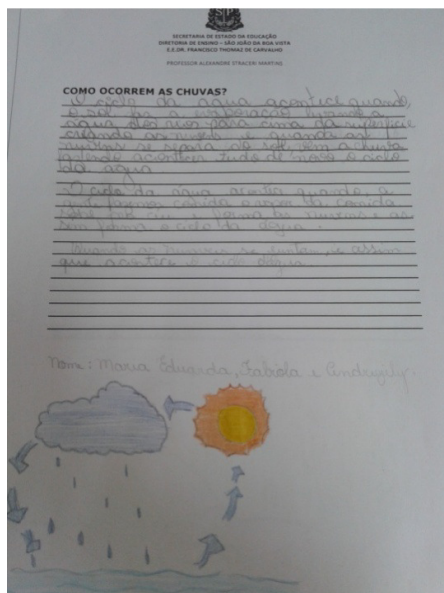 SECRETARIA DE ESTADO DA EDUCAÇÃO
DIRETORIA DE ENSINO – SÃO JOÃO DA BOA VISTA
E.E.DR. FRANCISCO THOMAZ DE CARVALHO
PROFESSOR ALEXANDRE STRACERI MARTINS
COMO OCORREM AS CHUVAS?
O ciclo da água acontece quando,
o sol faz a evaporação levando a
água dos rios para cima da superfície
criando as nuvens e quando as
nuvens se separa do sol vem a chuva
acontecer tudo de novo o ciclo
da água.
O ciclo da água quando, a
gente fazemos comida o vapor da comida
sobe céu e forma as nuvens e as
sim forma o ciclo da água.
Quando as nuvens se juntam, e assim
que acontece o ciclo dágua
Nome: Maria Eduarda, Fabiola e